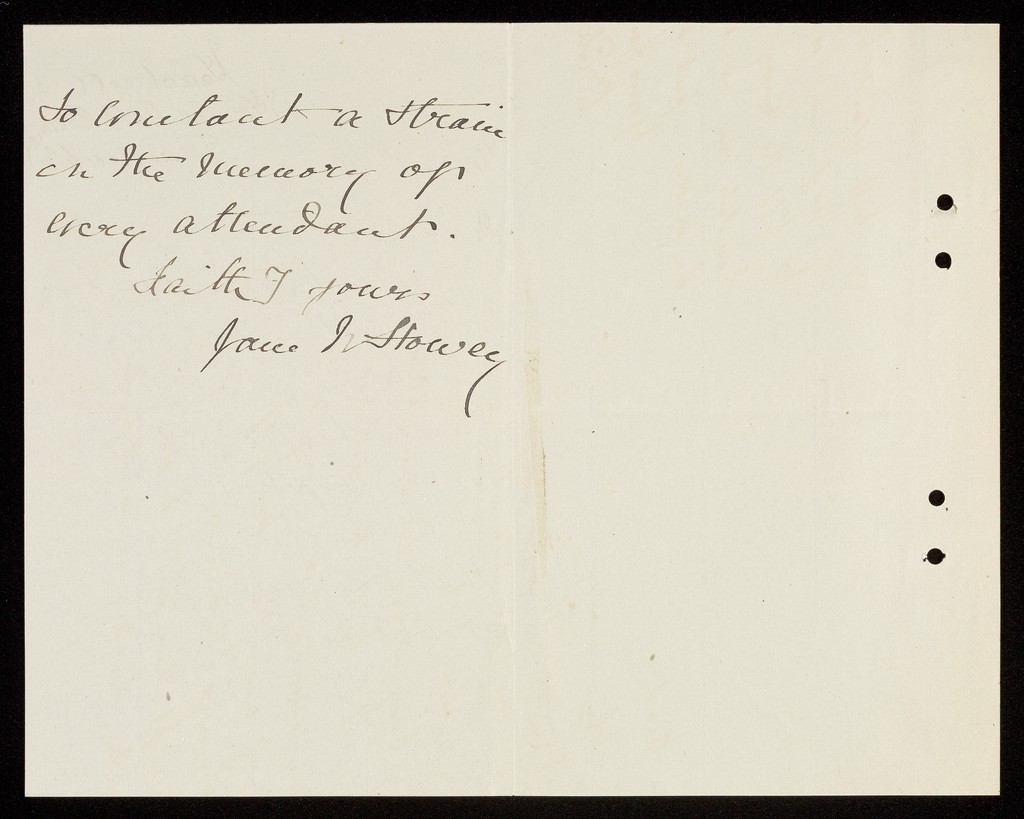 so constant a strain
on the memory of
every attendant.
Faithfy yours
Jane Stowey